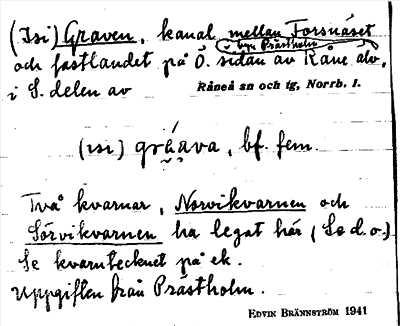 (Isi) Graven, kanal mellan Forsnäset
o. byn Prästholm
och fastlandet på Ö. sidan av Råne älv,
i S. delen av Råneå sn och tg, Norrb. l.
(ısi) grava, bf. fem.
Två kvarnar, Norvikvarnen och
Sörvikvarnen ha legat här (Se d.o.)
Se kvarntecknet på ek.
Uppgiften från Prästholm.
EDVIN BRÄNNSTRÖM 1941